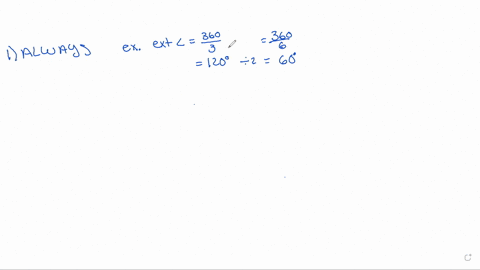 1) ALWAYS ex. ext < = 360/3 = 360/6
= 120° ÷2 = 60°